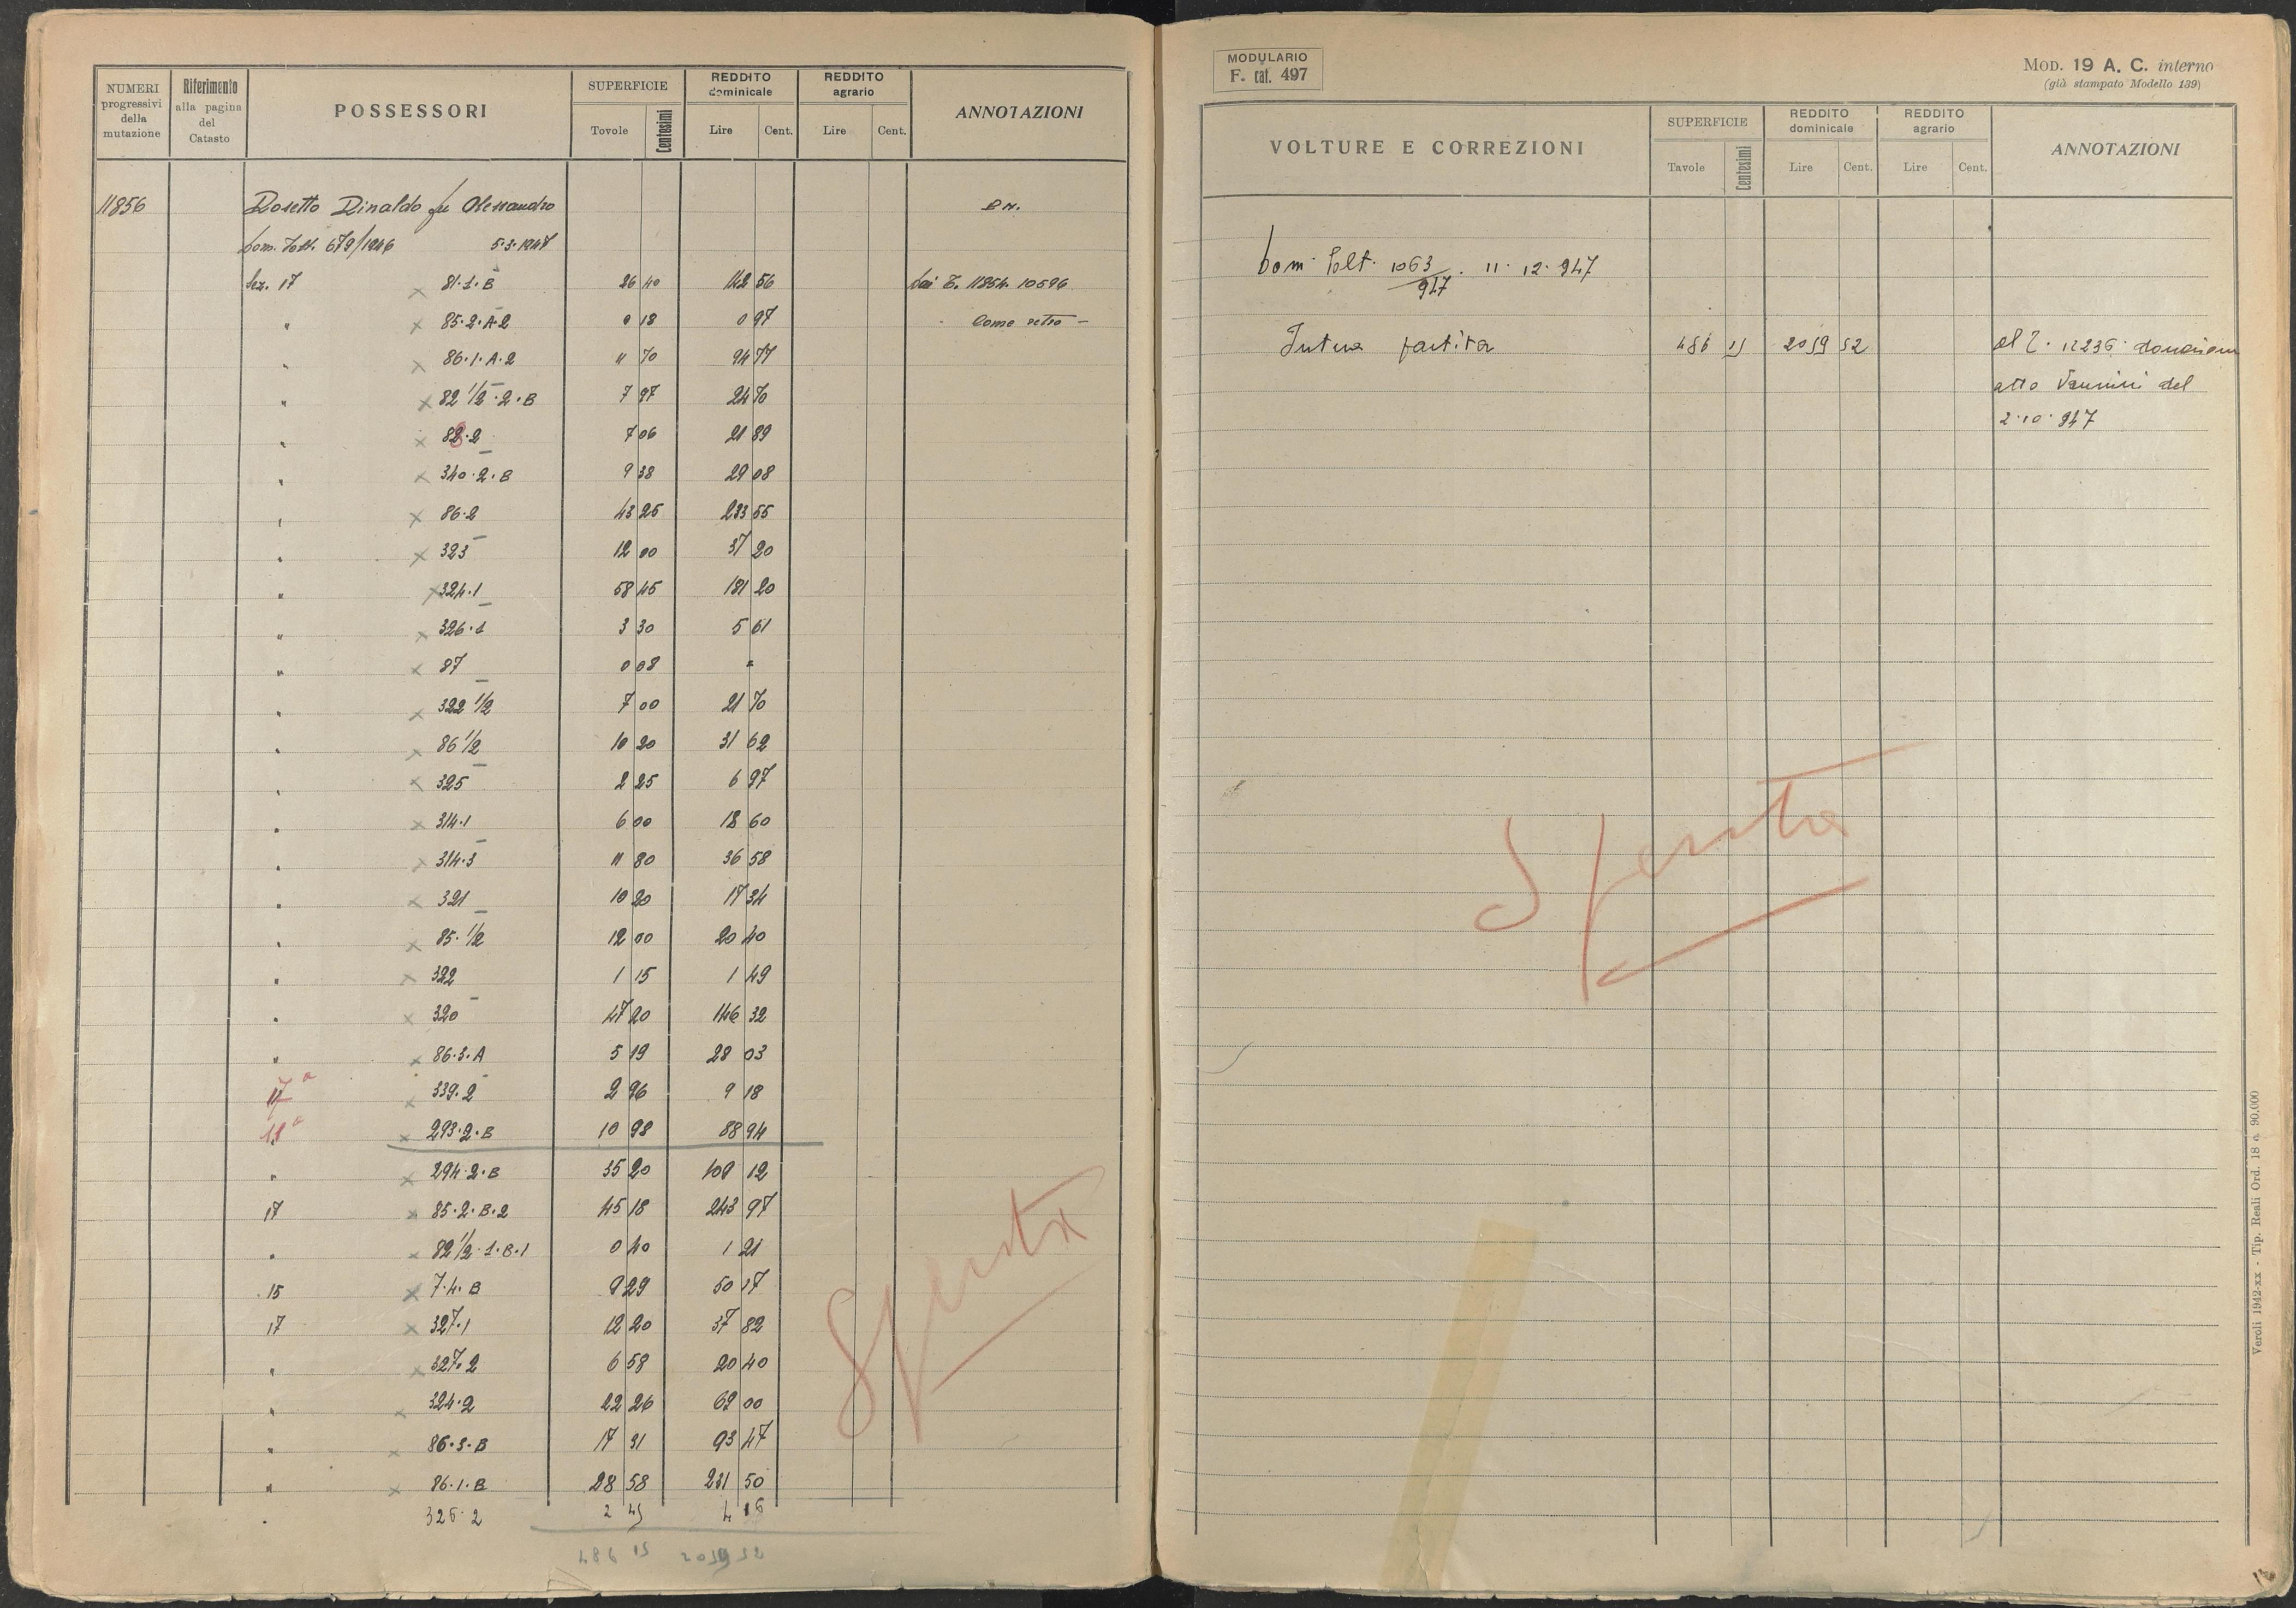 NUMERI progressivi della mutazione
Riferimento alla pagina del Catasto
POSSESSORI
SUPERFICIE
Tovole Centesimi
REDDITO dominicale
Lire Cent.
REDDITO agrario
Lire Cent.
ANNOTAZIONI
11856 Rosetto Rinaldo fu Alessandro
679/1946 5.3.1947
Sez. 17 × 81.1.B 26 40 142 56 11854 10596
" × 85.2.A.2 0 18 0 97 Come retro -
" × 86.1.A.2 11 70 94 77
" × 82 1/2.2.B 7 97 24 70
" × 2 7 06 21 89
" × 340.2.B 9 38 29 08
" × 86.2 43 25 233 55
" × 323 12 00 37 20
" × 324.1 58 45 181 20
" × 326.1 3 30 5 61
" × 87 0 08 "
" × 322 1/2 7 00 21 70
" × 86 1/2 10 20 31 62
" × 325 2 25 6 97
" × 314.1 6 00 18 60
" × 314.3 11 80 36 58
" × 321 10 20 17 34
" × 85.1/2 12 00 20 40
" × 322 1 15 1 49
" × 320 47 20 146 32
" × 86.3.A 5 19 28 03
17a × 339.2 2 96 9 18
18a × 293.2.B 10 98 88 94
" × 294.2.B 35 20 109 12
17 × 85.2.B.2 45 18 243 97
" × 82 1/2.1.B.1 0 40 1 21
15 × 7.4.B 9 29 50 17
17 × 327.1 12 20 37 82
" × 327.2 6 58 20 40
" × 324.2 22 26 69 00
" × 86.3.B 17 31 93 47
" × 86.1.B 28 58 231 50
" 326.2 2 45 4 16
486 15 2059 52
Spenta
MODULARIO
F. cat. 497
MOD. 19 A. C. interno
(già stampato Modello 139)
VOLTURE E CORREZIONI
SUPERFICIE
Tavole Centesimi
REDDITO dominicale
Lire Cent.
REDDITO agrario
Lire Cent.
ANNOTAZIONI
1063/947. 11.12.947
Intera partita 486 15 2059 52 al 12236 donazione
atto Vannini del
2.10.947
Spenta
Veroli 1942-xx - Tip. Reali Ord. 18 c. 90.000